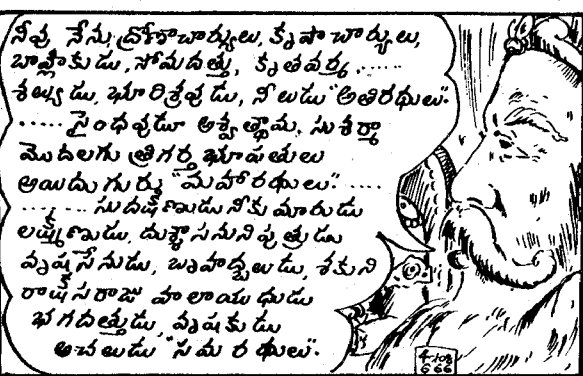 నీవు, నేను, ద్రోణాచార్యులు, కృపాచార్యులు,
బాహ్లికుడు, సోమదత్తు, కృతవర్మ ......
శల్యుడు, భూరిశ్రవుడు, నీలుడు "అతిరథులు".
..... సైంధవుడూ అశ్వత్థామ, సుశర్మా
మొదలగు త్రిగర్త భూపతులు
అయిదుగుర్ను "మహారథులు". .....
........ సుదక్షిణుడు నీకుమారుడు
లక్ష్మణుడు, దుశ్శాసనునిపుత్రుడు
వృషసేనుడు, బృహద్బలుడు, శకుని
రాక్షసరాజు హలాయుధుడు
భగదత్తుడు, వృషకుడు
అచలుడు "సమరథులు".
4-108
666